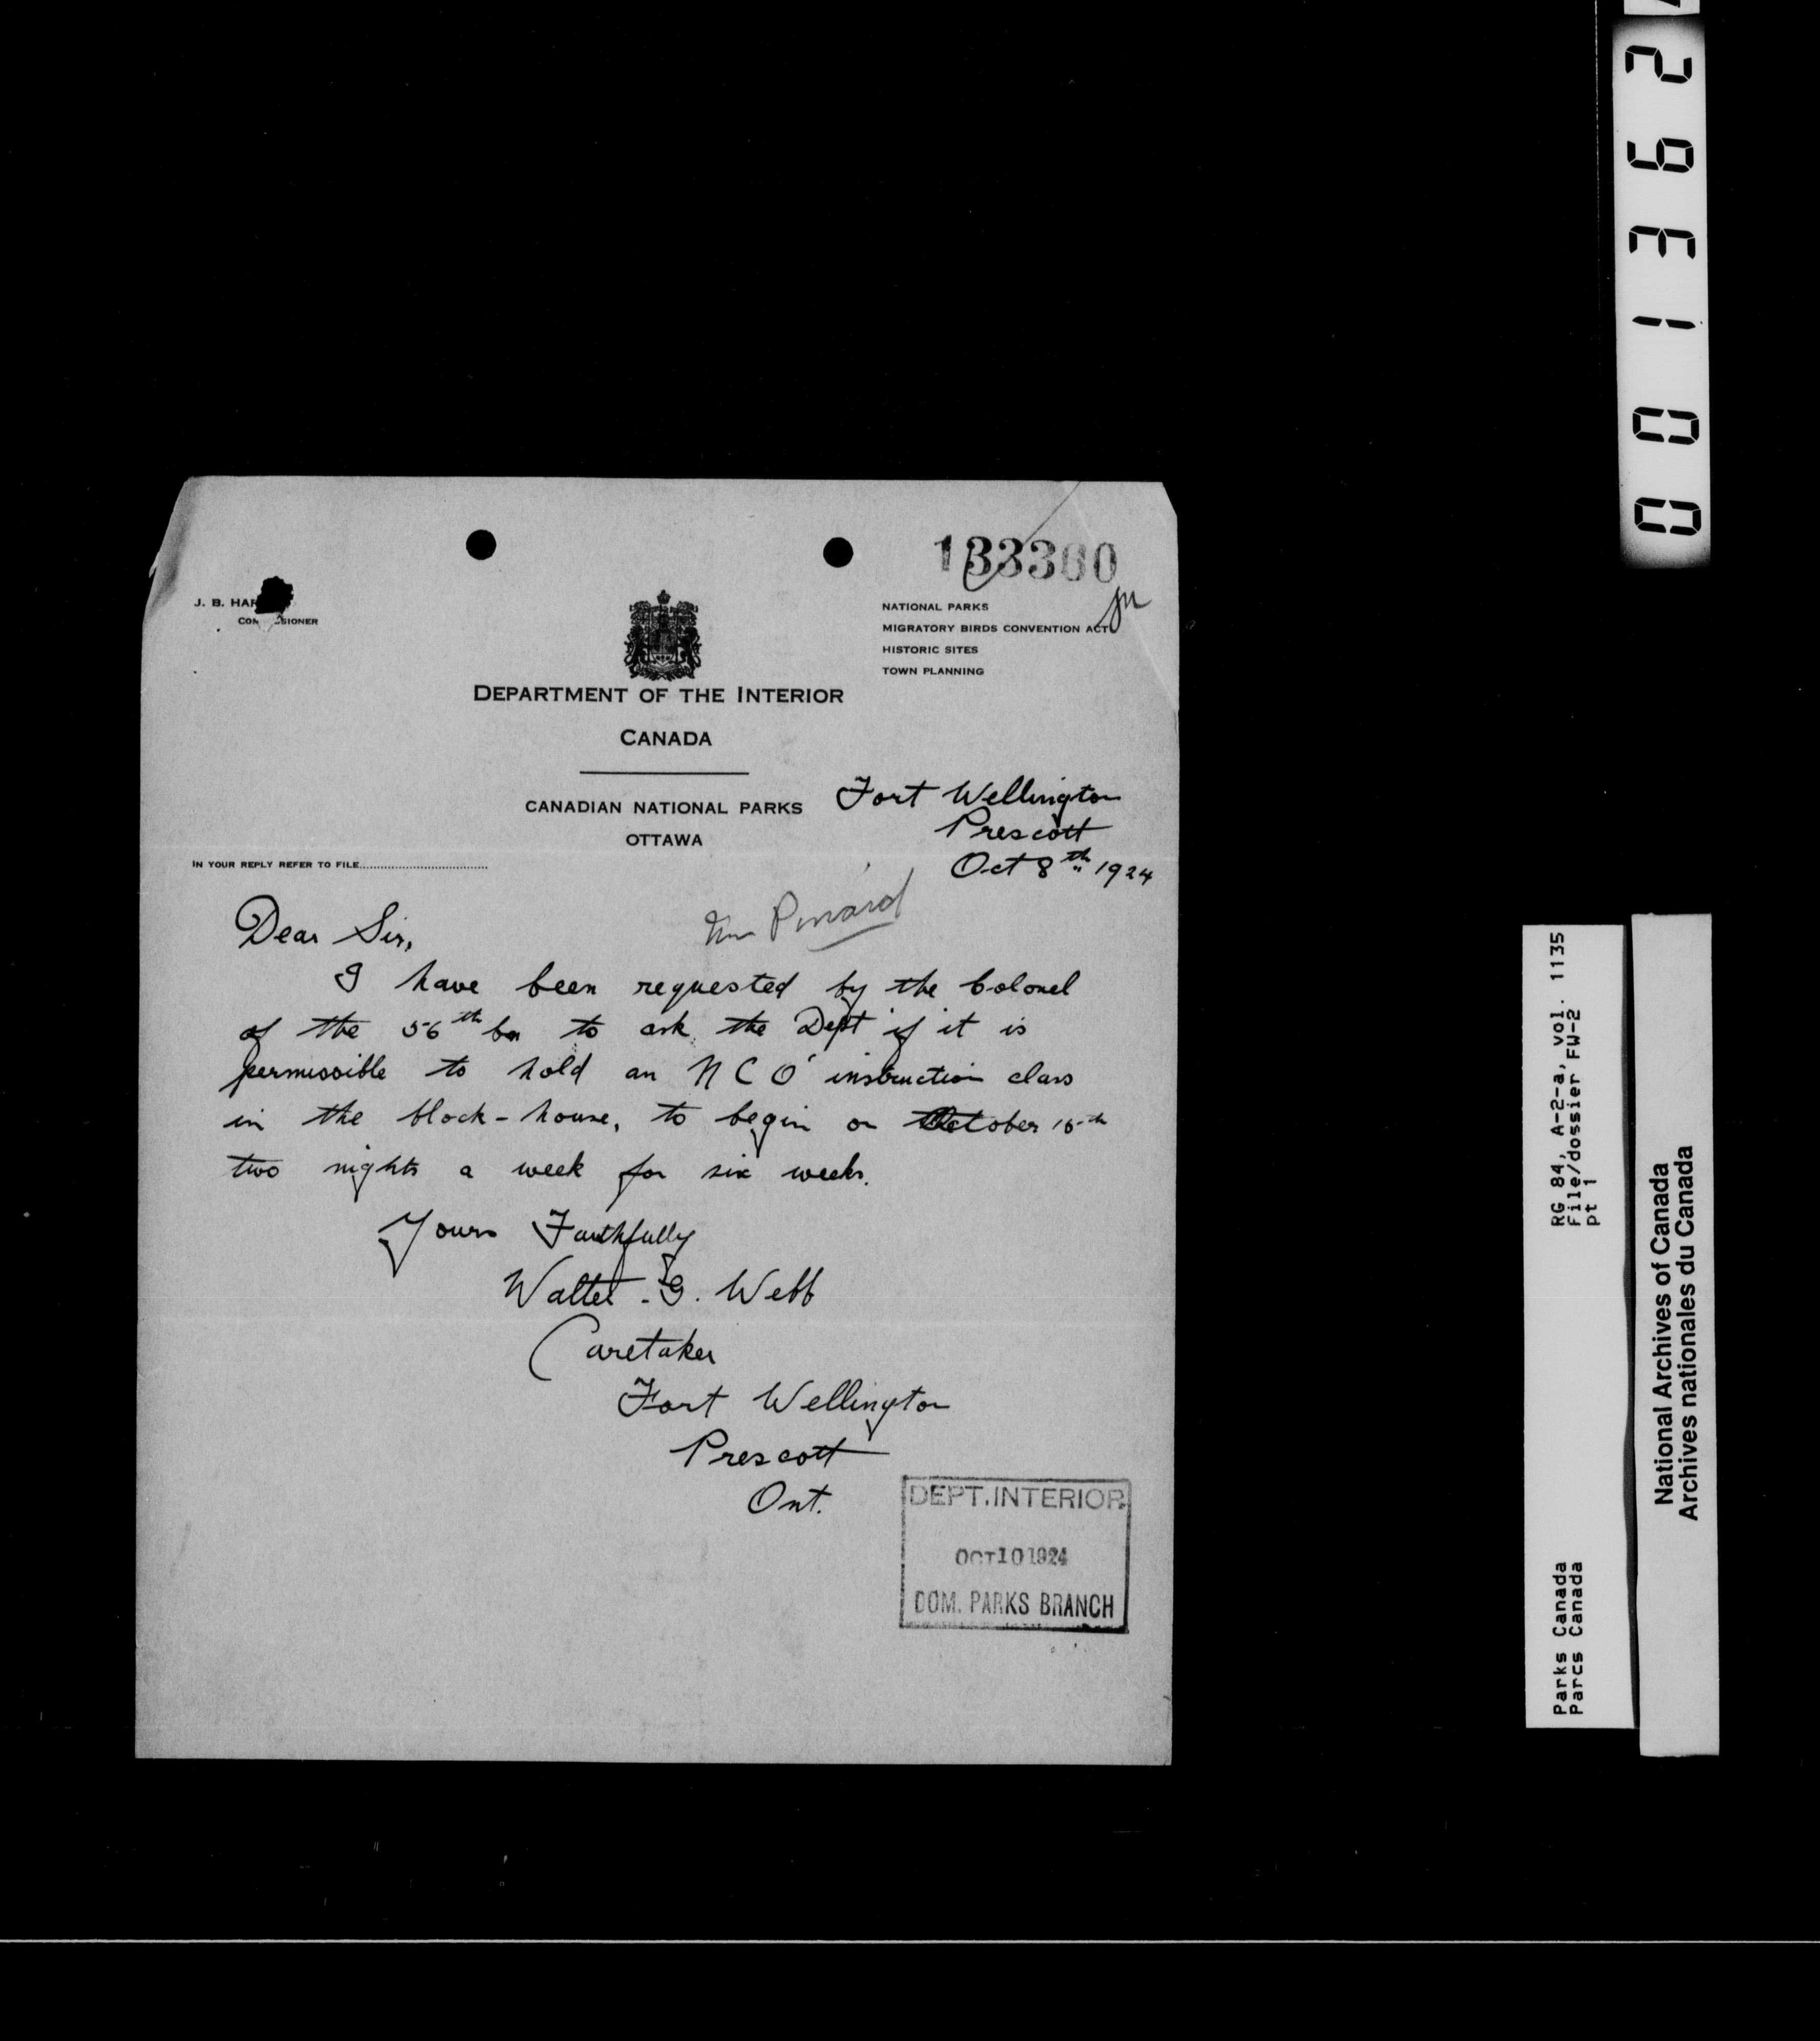 133360
J. B. HAR
COM SIONER
NATIONAL PARKS
MIGRATORY BIRDS CONVENTION ACT
HISTORIC SITES
TOWN PLANNING
DEPARTMENT OF THE INTERIOR
CANADA
CANADIAN NATIONAL PARKS
OTTAWA
Fort Wellington
Prescott
Oct 8th 1924
IN YOUR REPLY REFER TO FILE
Dear Sir,
I have been requested by the Colonel
of the 56th bn to ask the Dept if it is
permissible to hold an N C O instruction class
in the block-house, to begin on October 15th
two nights a week for six weeks.
Yours Faithfully
Walter. G. Webb
Caretaker
Fort Wellington
Prescott
Ont.
DEPT. INTERIOR
OCT 10 1924
DOM. PARKS BRANCH
001362
RG 84, A-2-a, vol. 1135
File/dossier FW-2
pt 1
Parks Canada
Parcs Canada
National Archives of Canada
Archives nationales du Canada